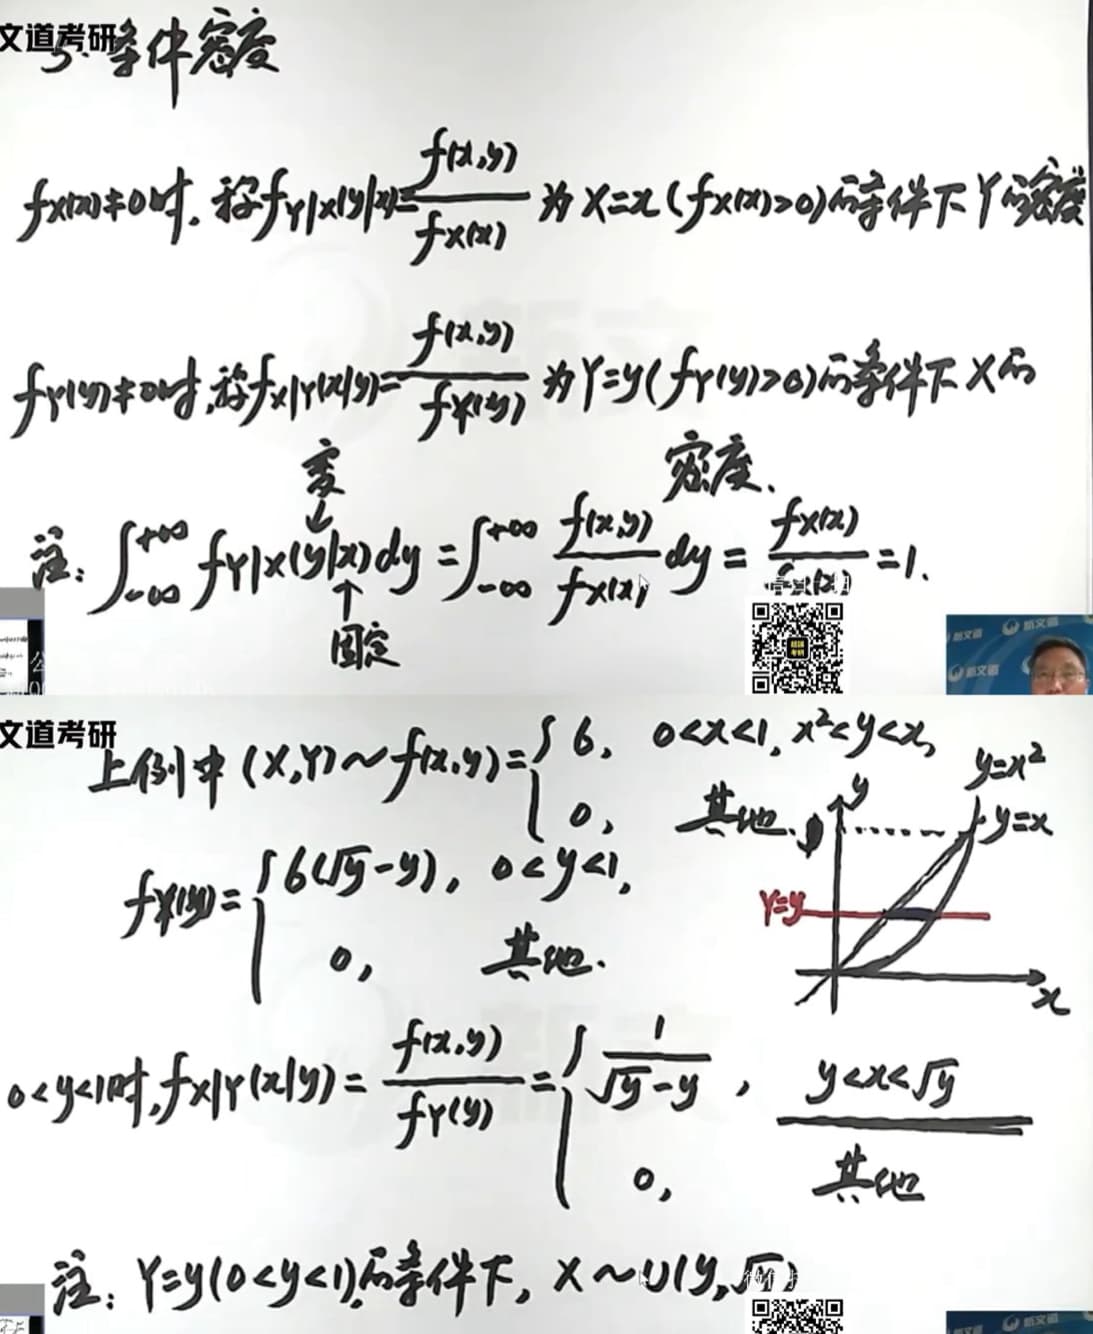 文道考研
5. 条件密度
f_X(x)≠0时, 称f_{Y|X}(y|x)=f(x,y)/f_X(x) 为X=x(f_X(x)>0)的条件下Y的密度
f_Y(y)≠0时, 称f_{X|Y}(x|y)=f(x,y)/f_Y(y) 为Y=y(f_Y(y)>0)的条件下X的
密度.
变
↓
注: ∫_{-∞}^{+∞} f_{Y|X}(y|x)dy = ∫_{-∞}^{+∞} f(x,y)/f_X(x) dy = f_X(x)/f_X(x) = 1.
↑
固定
新文道
新文道
文道考研
上例中 (X,Y)~f(x,y)={ 6, 0<x<1, x²<y<x,
0, 其他.
y=x²
y
y=x
f_Y(y)={ 6(√y-y), 0<y<1,
0, 其他.
Y=y
x
0<y<1时, f_{X|Y}(x|y)=f(x,y)/f_Y(y)={ 1/(√y-y), y<x<√y
0, 其他
注: Y=y(0<y<1)的条件下, X~U(y,√y)
新文道